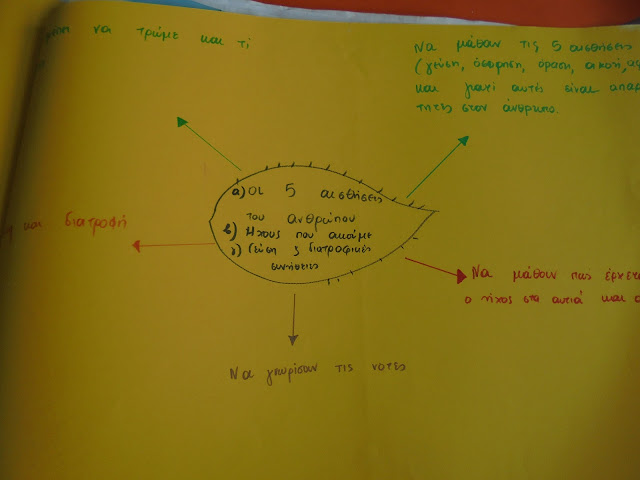 να τρώμε και τι
Να μάθουν τις 5 αισθήσεις
(γεύση, όσφρηση, όραση, ακοή, αφ
και γιατί αυτές είναι απαρ
τητες στον άνθρωπο.
α) οι 5 αισθήσεις
του ανθρώπου
β) Ήχους που ακούμε
γ) Γεύση ς διατροφικές
συνήθειες
και διατροφή
Να μάθουν πώς έρχετ
ο ήχος στα αυτιά και
Να γνωρίσουν τις νότες